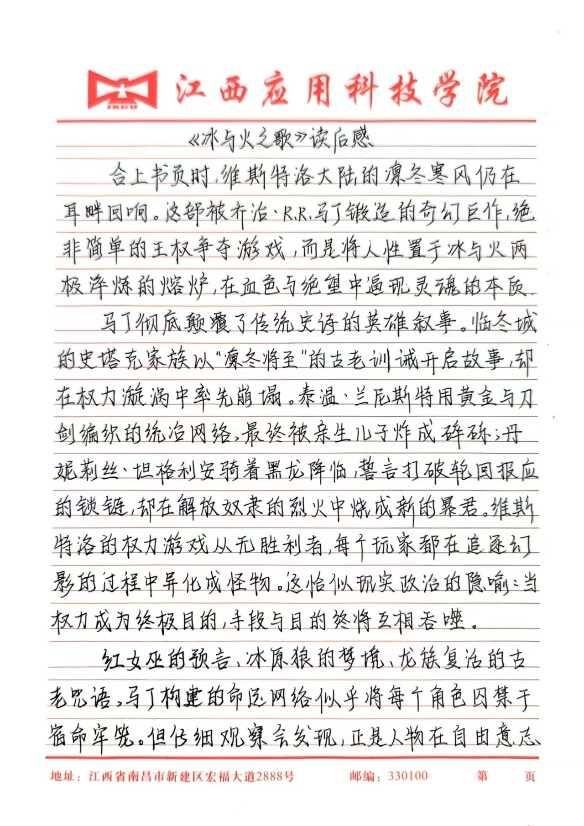 JXCU
江西应用科技学院
《冰与火之歌》读后感
合上书页时,维斯特洛大陆的凛冬寒风仍在
耳畔回响。这部被乔治·R.R.马丁锻造的奇幻巨作,绝
非简单的王权争夺游戏,而是将人性置于冰与火两
极淬炼的熔炉,在血色与绝望中逼现灵魂的本质
马丁彻底颠覆了传统史诗的英雄叙事。临冬城
的史塔克家族以“凛冬将至”的古老训诫开启故事,却
在权力漩涡中率先崩塌。泰温·兰尼斯特用黄金与刀
剑编织的统治网络,最终被亲生儿子炸成碎砾;丹
妮莉丝·坦格利安骑着黑龙降临,誓言打破轮回报应
的锁链,却在解放奴隶的烈火中烧成新的暴君。维斯
特洛的权力游戏从无胜利者,每个玩家都在追逐幻
影的过程中异化成怪物。这恰似现实政治的隐喻:当
权力成为终极目的,手段与目的终将互相吞噬。
红女巫的预言、冰原狼的梦境、龙族复活的古
老咒语,马丁构建的命运网络似乎将每个角色囚禁于
宿命牢笼。但仔细观察会发现,正是人物在自由意志
地址:江西省南昌市新建区宏福大道2888号 邮编:330100 第 页